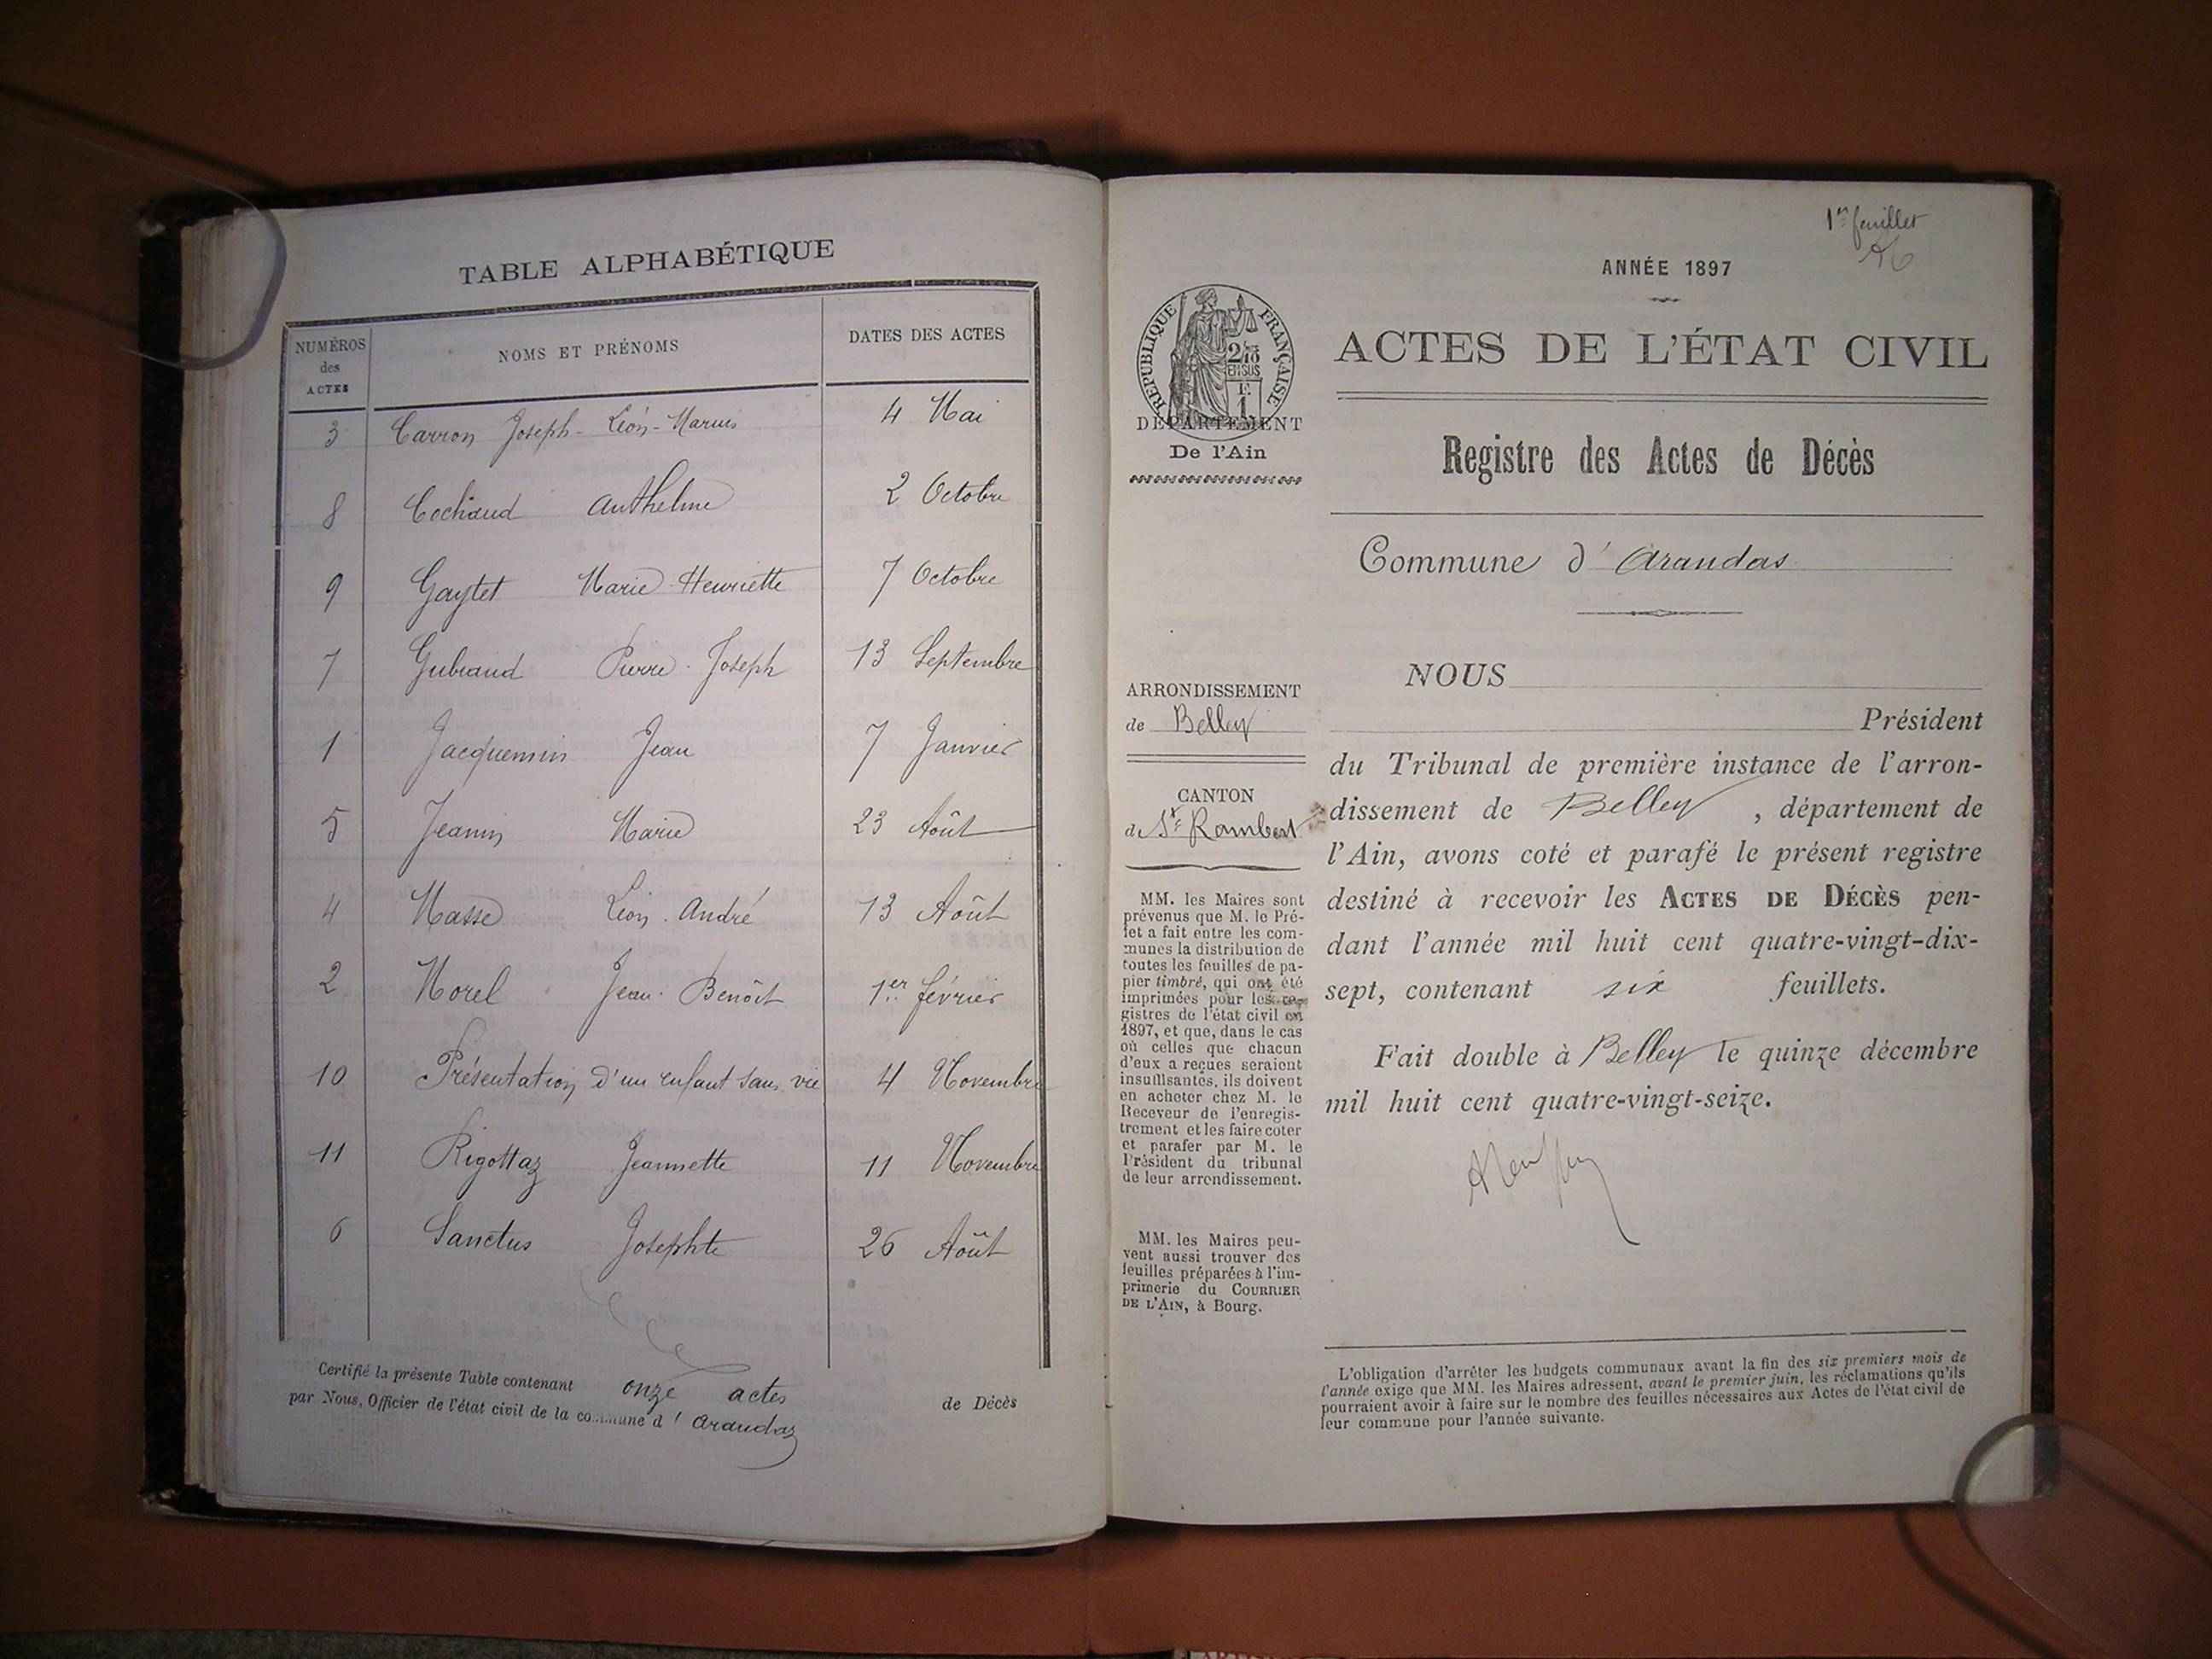 TABLE ALPHABÉTIQUE
NUMÉROS des ACTES
NOMS ET PRÉNOMS
DATES DES ACTES
3 Carron Joseph-Léon-Marius 4 Mai
8 Cochaud Anthelme 2 Octobre
9 Gaytet Marie-Henriette 7 Octobre
7 Gubiand Pierre-Joseph 13 Septembre
1 Jacquemin Jean 7 Janvier
5 Jeanin Marie 23 Août
4 Masse Léon-André 13 Août
2 Morel Jean-Benoît 1er février
10 Présentation d'un enfant sans vie 4 Novembre
11 Rigottaz Jeannette 11 Novembre
6 Sanctus Josephte 26 Août
Certifié la présente Table contenant onze actes de Décès
par Nous, Officier de l'état civil de la commune d'Arandaz
1er feuillet
ANNÉE 1897
RÉPUBLIQUE FRANÇAISE
2/10 EN SUS
F. 1
DÉPARTEMENT
De l'Ain
ACTES DE L'ÉTAT CIVIL
Registre des Actes de Décès
Commune d'Arandas
ARRONDISSEMENT
de Belley
CANTON
de St Rambert
MM. les Maires sont
prévenus que M. le Pré-
fet a fait entre les com-
munes la distribution de
toutes les feuilles de pa-
pier timbré, qui ont été
imprimées pour les re-
gistres de l'état civil en
1897, et que, dans le cas
où celles que chacun
d'eux a reçues seraient
insuffisantes, ils doivent
en acheter chez M. le
Receveur de l'enregis-
trement et les faire coter
et parafer par M. le
Président du tribunal
de leur arrondissement.
MM. les Maires peu-
vent aussi trouver des
feuilles préparées à l'im-
primerie du COURRIER
DE L'AIN, à Bourg.
NOUS
Président
du Tribunal de première instance de l'arron-
dissement de Belley, département de
l'Ain, avons coté et parafé le présent registre
destiné à recevoir les ACTES DE DÉCÈS pen-
dant l'année mil huit cent quatre-vingt-dix-
sept, contenant six feuillets.
Fait double à Belley le quinze décembre
mil huit cent quatre-vingt-seize.
L'obligation d'arrêter les budgets communaux avant la fin des six premiers mois de
l'année exige que MM. les Maires adressent, avant le premier juin, les réclamations qu'ils
pourraient avoir à faire sur le nombre des feuilles nécessaires aux Actes de l'état civil de
leur commune pour l'année suivante.